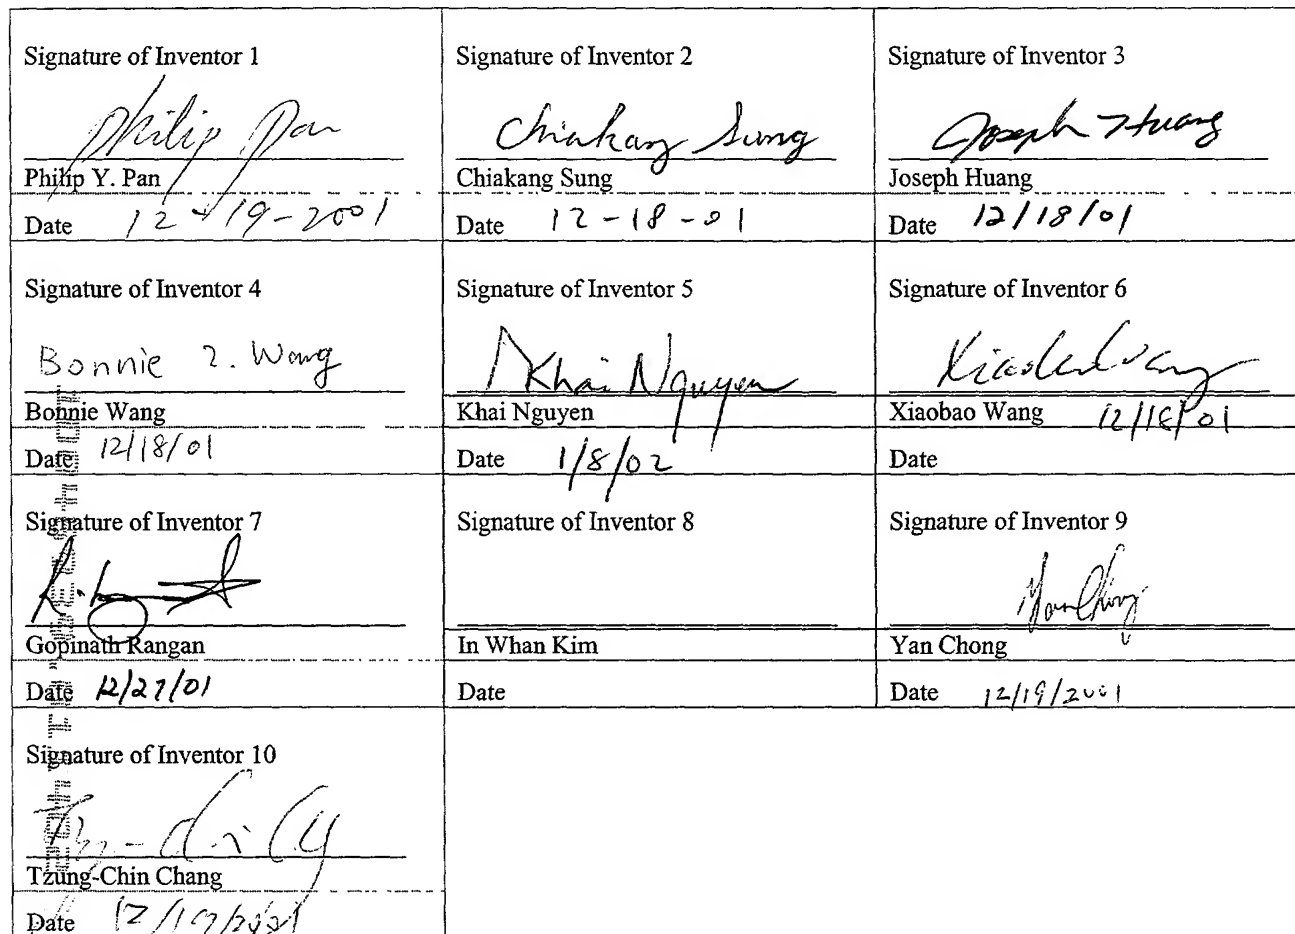 Signature of Inventor 1
Philip Pan
Philip Y. Pan
Date 12-19-2001
Signature of Inventor 2
Chiakang Sung
Chiakang Sung
Date 12-18-01
Signature of Inventor 3
Joseph Huang
Joseph Huang
Date 12/18/01
Signature of Inventor 4
Bonnie I. Wang
Bonnie Wang
Date 12/18/01
Signature of Inventor 5
Khai Nguyen
Khai Nguyen
Date 1/8/02
Signature of Inventor 6
Xiaobao Wang
Xiaobao Wang 12/18/01
Date
Signature of Inventor 7
Gopinath Rangan
Date 12/27/01
Signature of Inventor 8
In Whan Kim
Date
Signature of Inventor 9
Yan Chong
Yan Chong
Date 12/19/2001
Signature of Inventor 10
Tzung-Chin Chang
Date